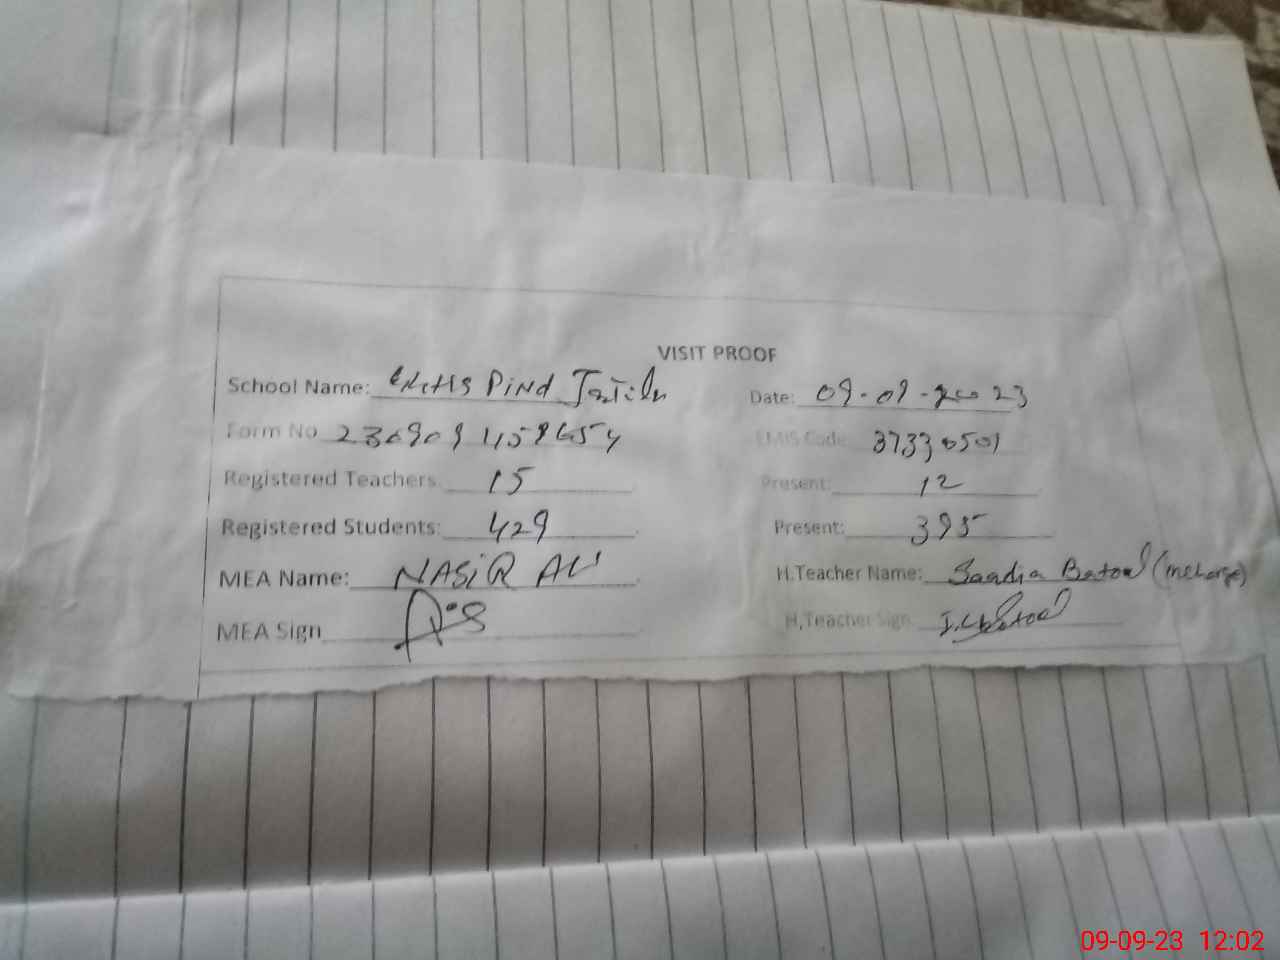 VISIT PROOF
School Name: Pind Date: 09-09-2023
Form No 230909 EMIS Code 37330501
Registered Teachers: 15 Present: 12
Registered Students: 429 Present: 395
MEA Name: NASIR ALI H.Teacher Name: Saadia Batool (incharge)
MEA Sign H.Teacher Sign
09-09-23 12:02